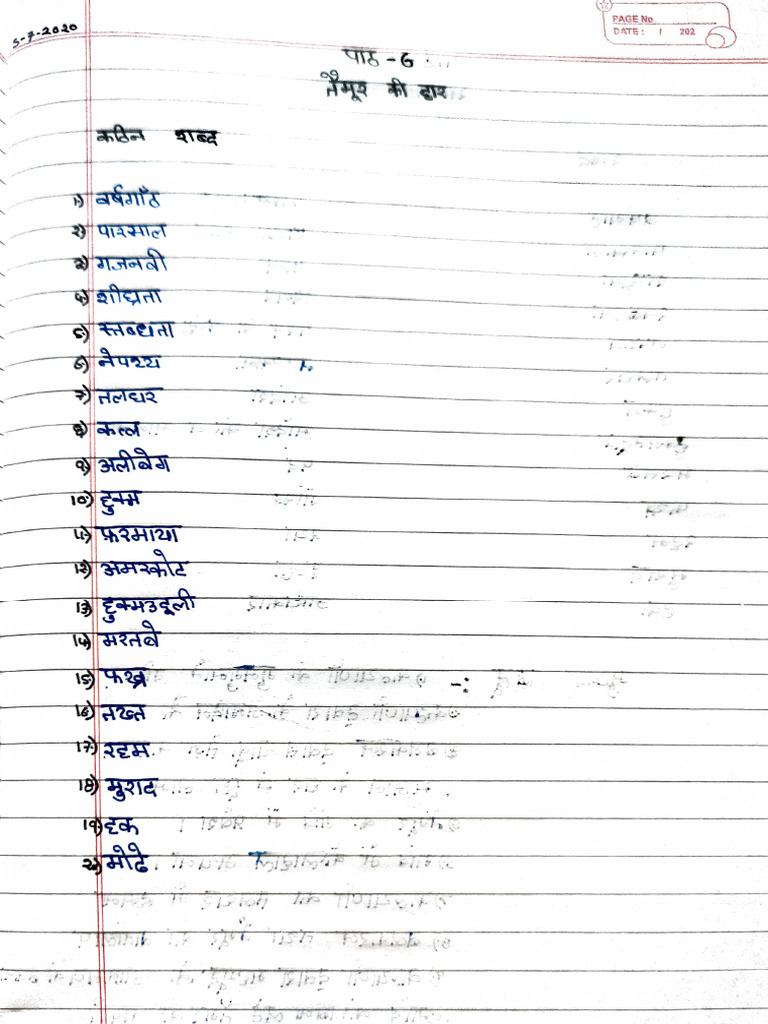 5-7-2020
PAGE No
DATE: / 202
पाठ - 6
तैमूर की हार
कठिन शब्द
1) वर्षगाँठ
2) पारसाल
3) गजनवी
4) शीघ्रता
5) स्तब्धता
6) नेपथ्य
7) तलघर
8) कत्ल
9) अलीबेग
10) हुक्म
11) फ़रमाया
12) अमरकोट
13) हुक्मउदूली
14) मरतबे
15) फख्र
16) तख्त
17) रहम
18) मुराद
19) हक
20) मोढे